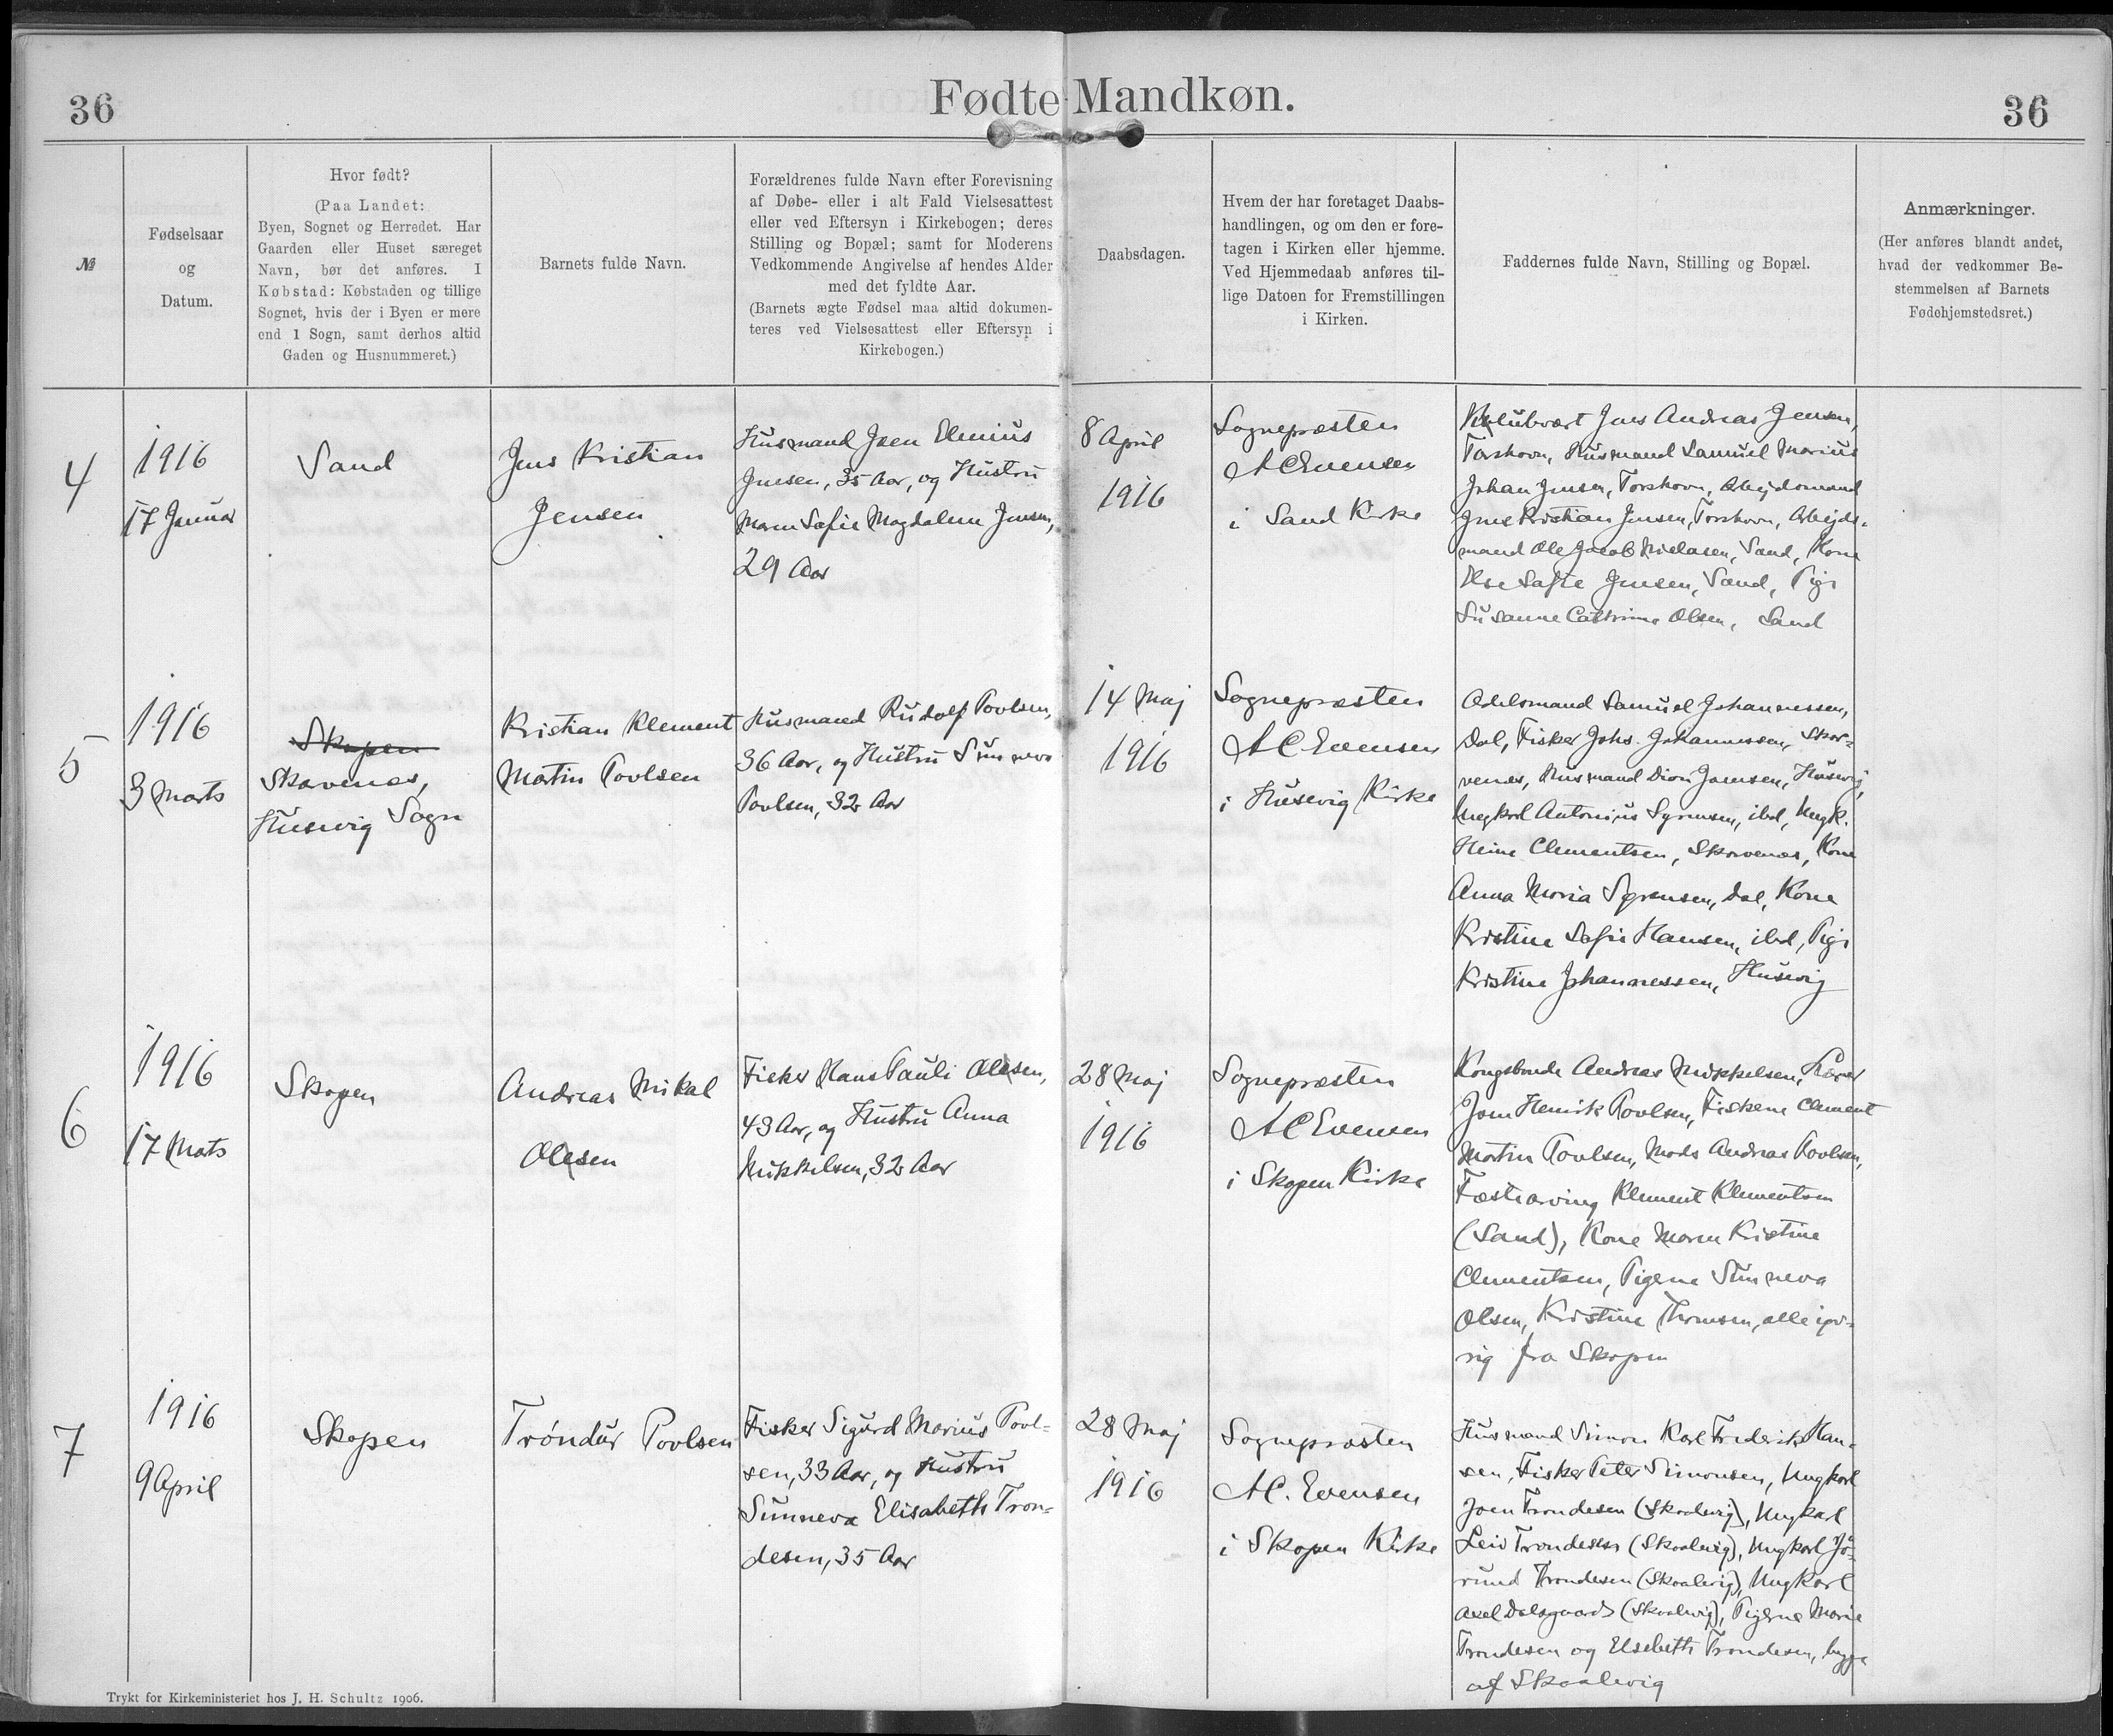 36
Fødte Mandkøn.
36
№
Fødselsaar
og
Datum.
Hvor født?
(Paa Landet:
Byen, Sognet og Herredet. Har
Gaarden eller Huset særeget
Navn, bør det anføres. I
Købstad: Købstaden og tillige
Sognet, hvis der i Byen er mere
end 1 Sogn, samt derhos altid
Gaden og Husnummeret.)
Barnets fulde Navn.
Forældrenes fulde Navn efter Forevisning
af Døbe- eller i alt Fald Vielsesattest
eller ved Eftersyn i Kirkebogen; deres
Stilling og Bopæl; samt for Moderens
Vedkommende Angivelse af hendes Alder
med det fyldte Aar.
(Barnets ægte Fødsel maa altid dokumen-
teres ved Vielsesattest eller Eftersyn i
Kirkebogen.)
Daabsdagen.
Hvem der har foretaget Daabs-
handlingen, og om den er fore-
tagen i Kirken eller hjemme.
Ved Hjemmedaab anføres til-
lige Datoen for Fremstillingen
i Kirken.
Faddernes fulde Navn, Stilling og Bopæl.
Anmærkninger.
(Her anføres blandt andet,
hvad der vedkommer Be-
stemmelsen af Barnets
Fødehjemstedsret.)
4
1916
17 Januar
Sand
Jens Kristian
Jensen
Husmand Joen Elenius
Jensen, 35 Aar, og Hustru
Maren Safie Magdalena Jensen,
29 Aar
8 April
1916
Sognepræsten
A C Evensen
i Sand Kirke
Klubvært Jens Andreas Jensen,
Torshavn, Husmand Samuel Marius
Johan Jensen, Torshavn, Arbejdsmand
Jens Kristian Jensen, Torshavn, Arbejds-
mand Ole Jacob Nielasen, Sand, Kone
Else Safie Jensen, Sand, Pige
Susanne Cathrine Olsen, Sand
5
1916
3 Marts
Skopen
Skarvenes,
Husevig Sogn
Kristian Klement
Martin Poulsen
Husmand Rudolf Poulsen,
36 Aar, og Hustru Sunneva
Poulsen, 32 Aar
14 Maj
1916
Sognepræsten
A C Evensen
i Husevig Kirke
Odelsmand Samuel Johannessen,
Dal, Fisker Johs. Johannessen, Skar-
venes, Husmand Dion Joensen, Husevig,
Ungkarl Antonius Sørensen, ibd, Ungk.
Heine Clementsen, Skarvenes, Kone
Anna Maria Sørensen, Dal, Kone
Kristine Safie Hansen, ibd, Pige
Kristine Johannessen, Husevig
6
1916
17 Marts
Skopen
Andreas Mikal
Olesen
Fisker Hans Pauli Olesen,
43 Aar, og Hustru Anna
Mikkelsen, 32 Aar
28 Maj
1916
Sognepræsten
A C Evensen
i Skopen Kirke
Kongsbonde Andreas Mikkelsen, Lærer
Joen Henrik Poulsen, Fiskerne Clement
Martin Poulsen, Mads Andreas Poulsen,
Fæstearving Klement Klementsen
(Sand), Kone Maren Kristine
Clementsen, Pigerne Sunneva
Olsen, Kristine Thomsen, alle iøv-
rig fra Skopen
7
1916
9 April
Skopen
Tróndur Poulsen
Fisker Sigurd Marius Poul-
sen, 33 Aar, og Hustru
Sunneva Elisabeth Tron-
desen, 35 Aar
28 Maj
1916
Sognepræsten
A C. Evensen
i Skopen Kirke
Husmand Simon Karl Frederik Han-
sen, Fisker Peter Simonsen, Ungkarl
Joen Trondesen (Skaalevig), Ungkarl
Leiv Trondesen (Skaalevig), Ungkarl Jø-
rund Trondesen (Skaalevig), Ungkarl
Axel Dalsgaard (Skaalevig), Pigerne Marie
Trondesen og Elsebeth Trondesen, begge
af Skaalevig
Trykt for Kirkeministeriet hos J. H. Schultz 1906.